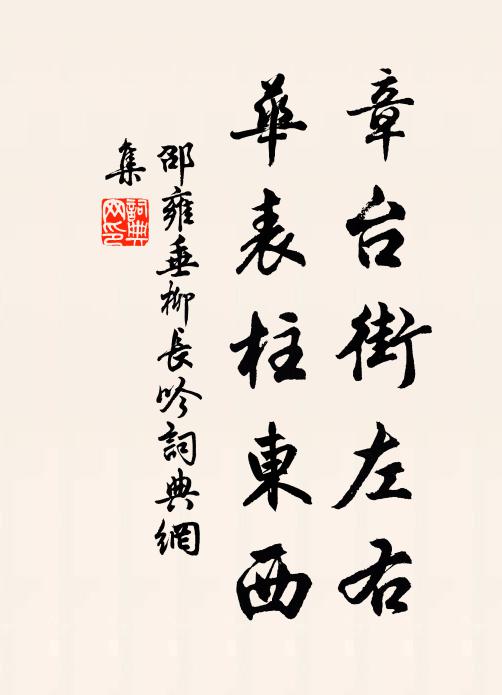 章台街左右
華表柱東西
邵雍垂柳長吟詞典網
集
詞典
网印